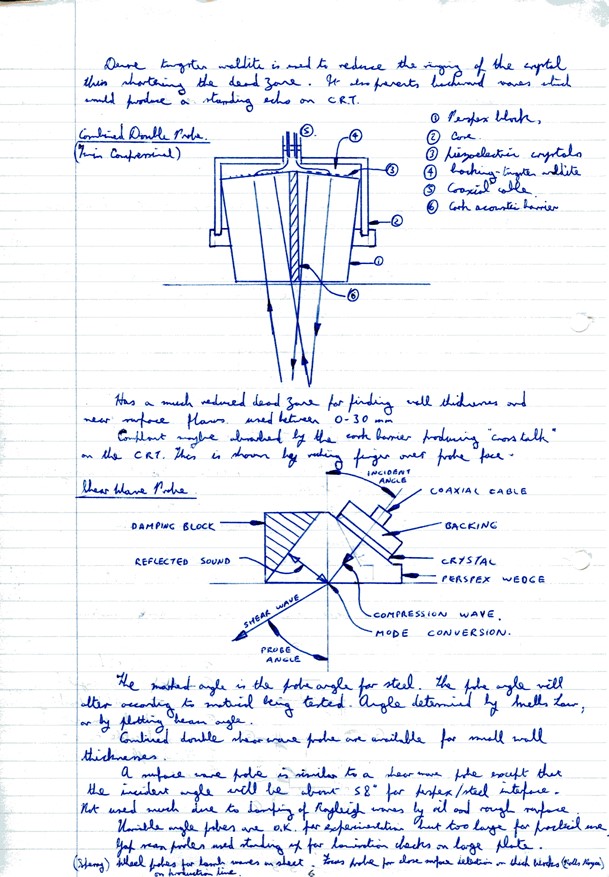 Dense tungsten araldite is used to reduce the ringing of the crystal
thus shortening the dead zone. It also prevents backward waves which
would produce a standing echo on C.R.T.
① Perspex block,
② Case
③ piezoelectric crystals
④ backing-tungsten araldite
⑤ Coaxial cable
⑥ Cork acoustic barrier
Combined Double Probe.
(Twin Compressional)
⑤
④
③
②
①
⑥
Has a much reduced dead zone for finding wall thickness and
near surface flaws. used between 0-30 mm
Couplant maybe absorbed by the cork barrier producing "cross talk"
on the C.R.T. This is shown by rubbing finger over probe face.
Shear Wave Probe
INCIDENT
ANGLE
COAXIAL CABLE
DAMPING BLOCK
BACKING
REFLECTED SOUND
CRYSTAL
PERSPEX WEDGE
SHEAR WAVE
COMPRESSION WAVE.
MODE CONVERSION.
PROBE
ANGLE
The marked angle is the probe angle for steel. The probe angle will
alter according to material being tested. Angle determined by Snells Law,
or by plotting beam angle.
Combined double shear wave probe are available for small wall
thicknesses.
A surface wave probe is similar to a shear wave probe except that
the incident angle will be about 58° for perspex/steel interface.
Not used much due to damping of Rayleigh waves by oil and rough surface.
Variable angle probes are O.K. for experimentation but too large for practical use.
Gap scan probes used standing up for lamination checks on large plate.
(Sperry) Wheel probes for Lamb waves on sheet. Focus probe for close surface detection on thick blocks
on production line.
6